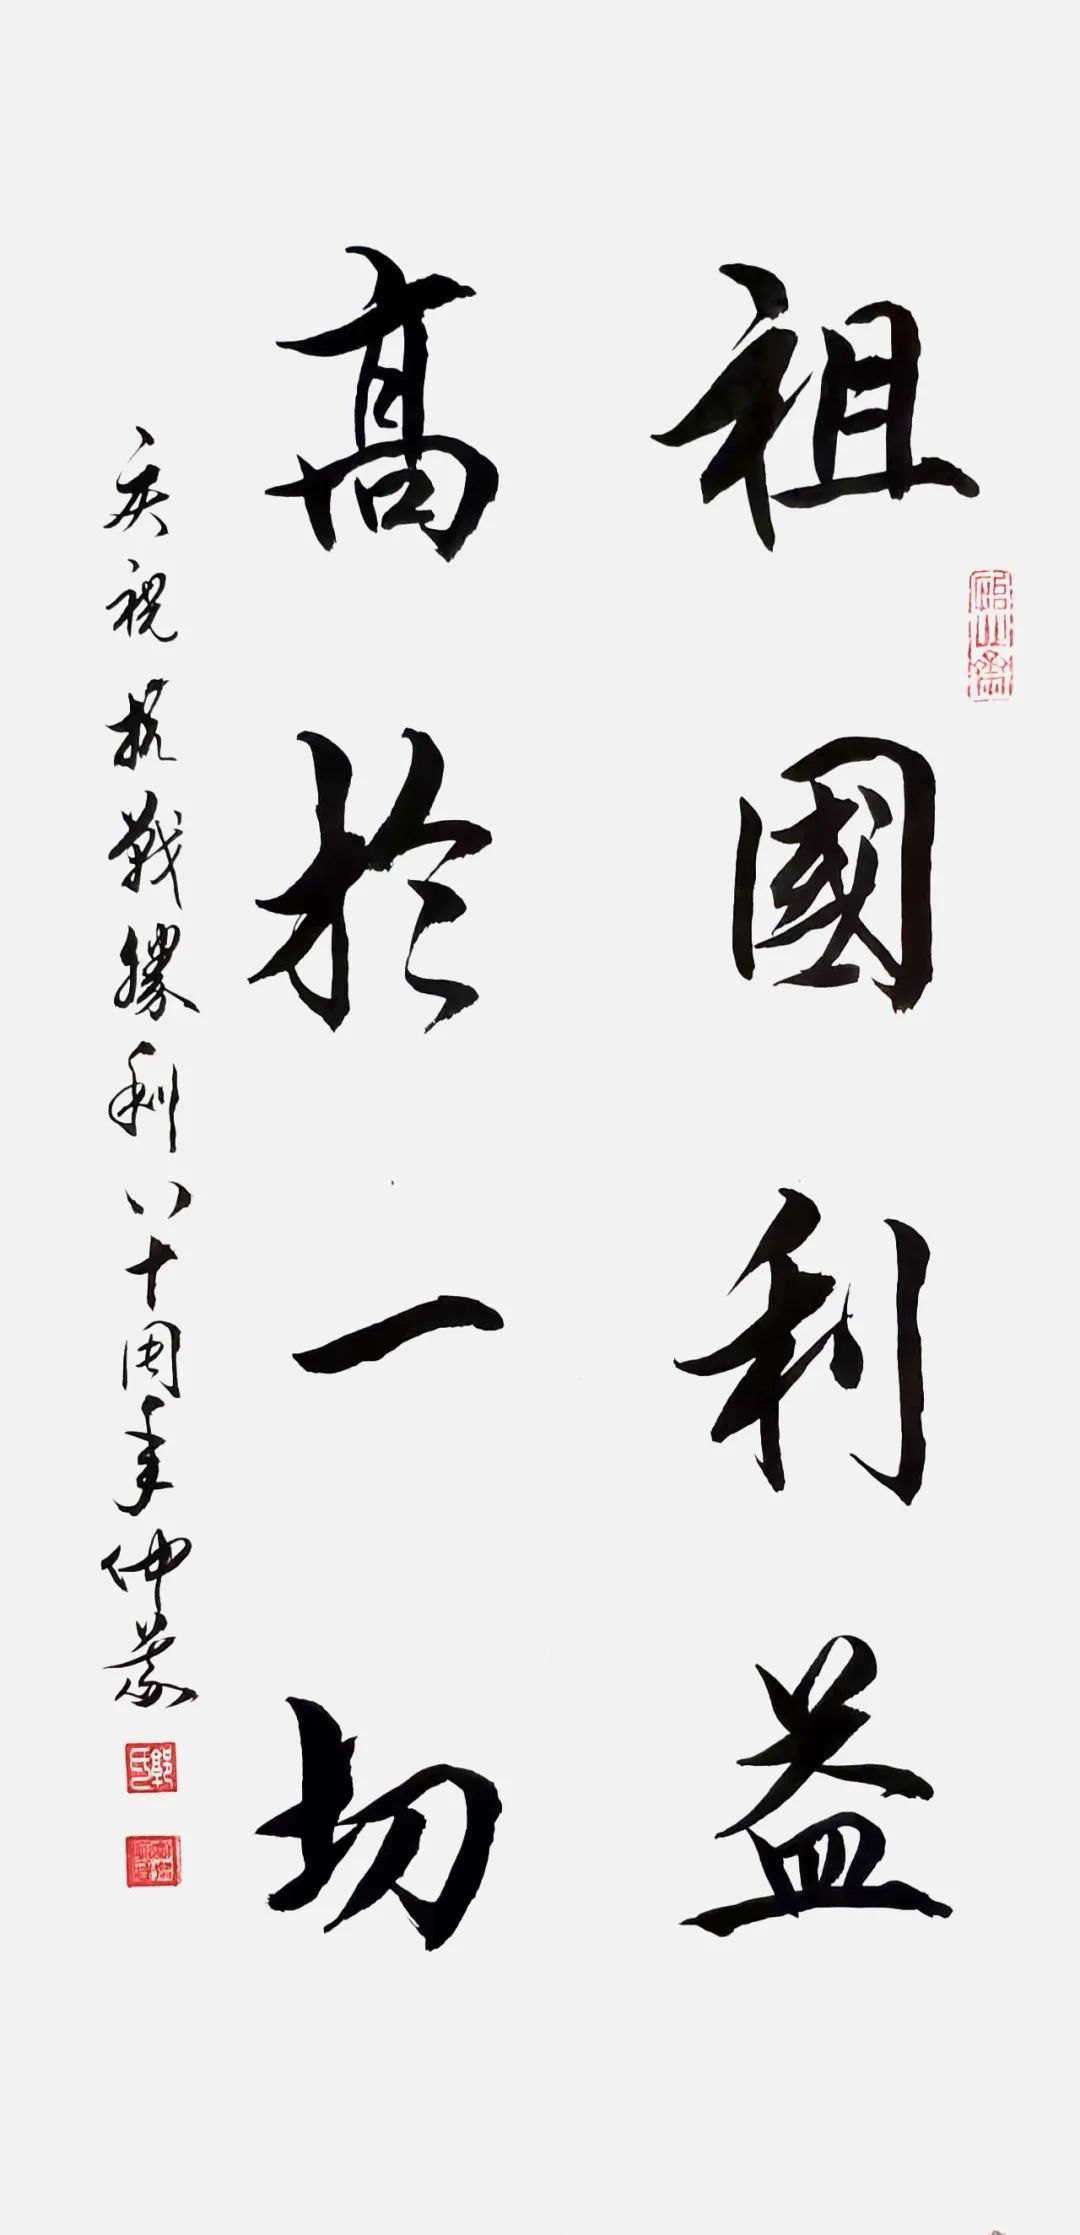 祖國利益
高於一切
庆祝抗戰勝利八十周年仲
郭氏